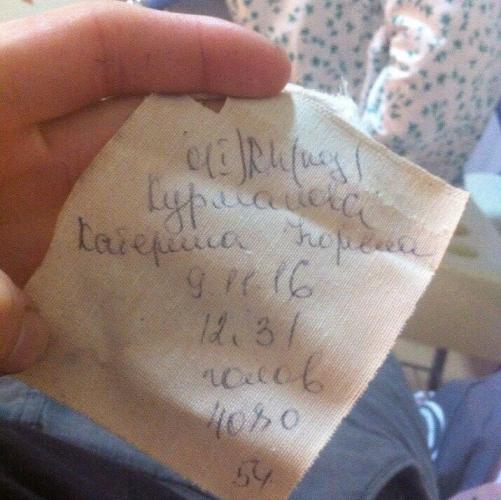 0(I) Rh(neg)
Курманова
Катерина
9.11.16
12.31
голов
4080
54